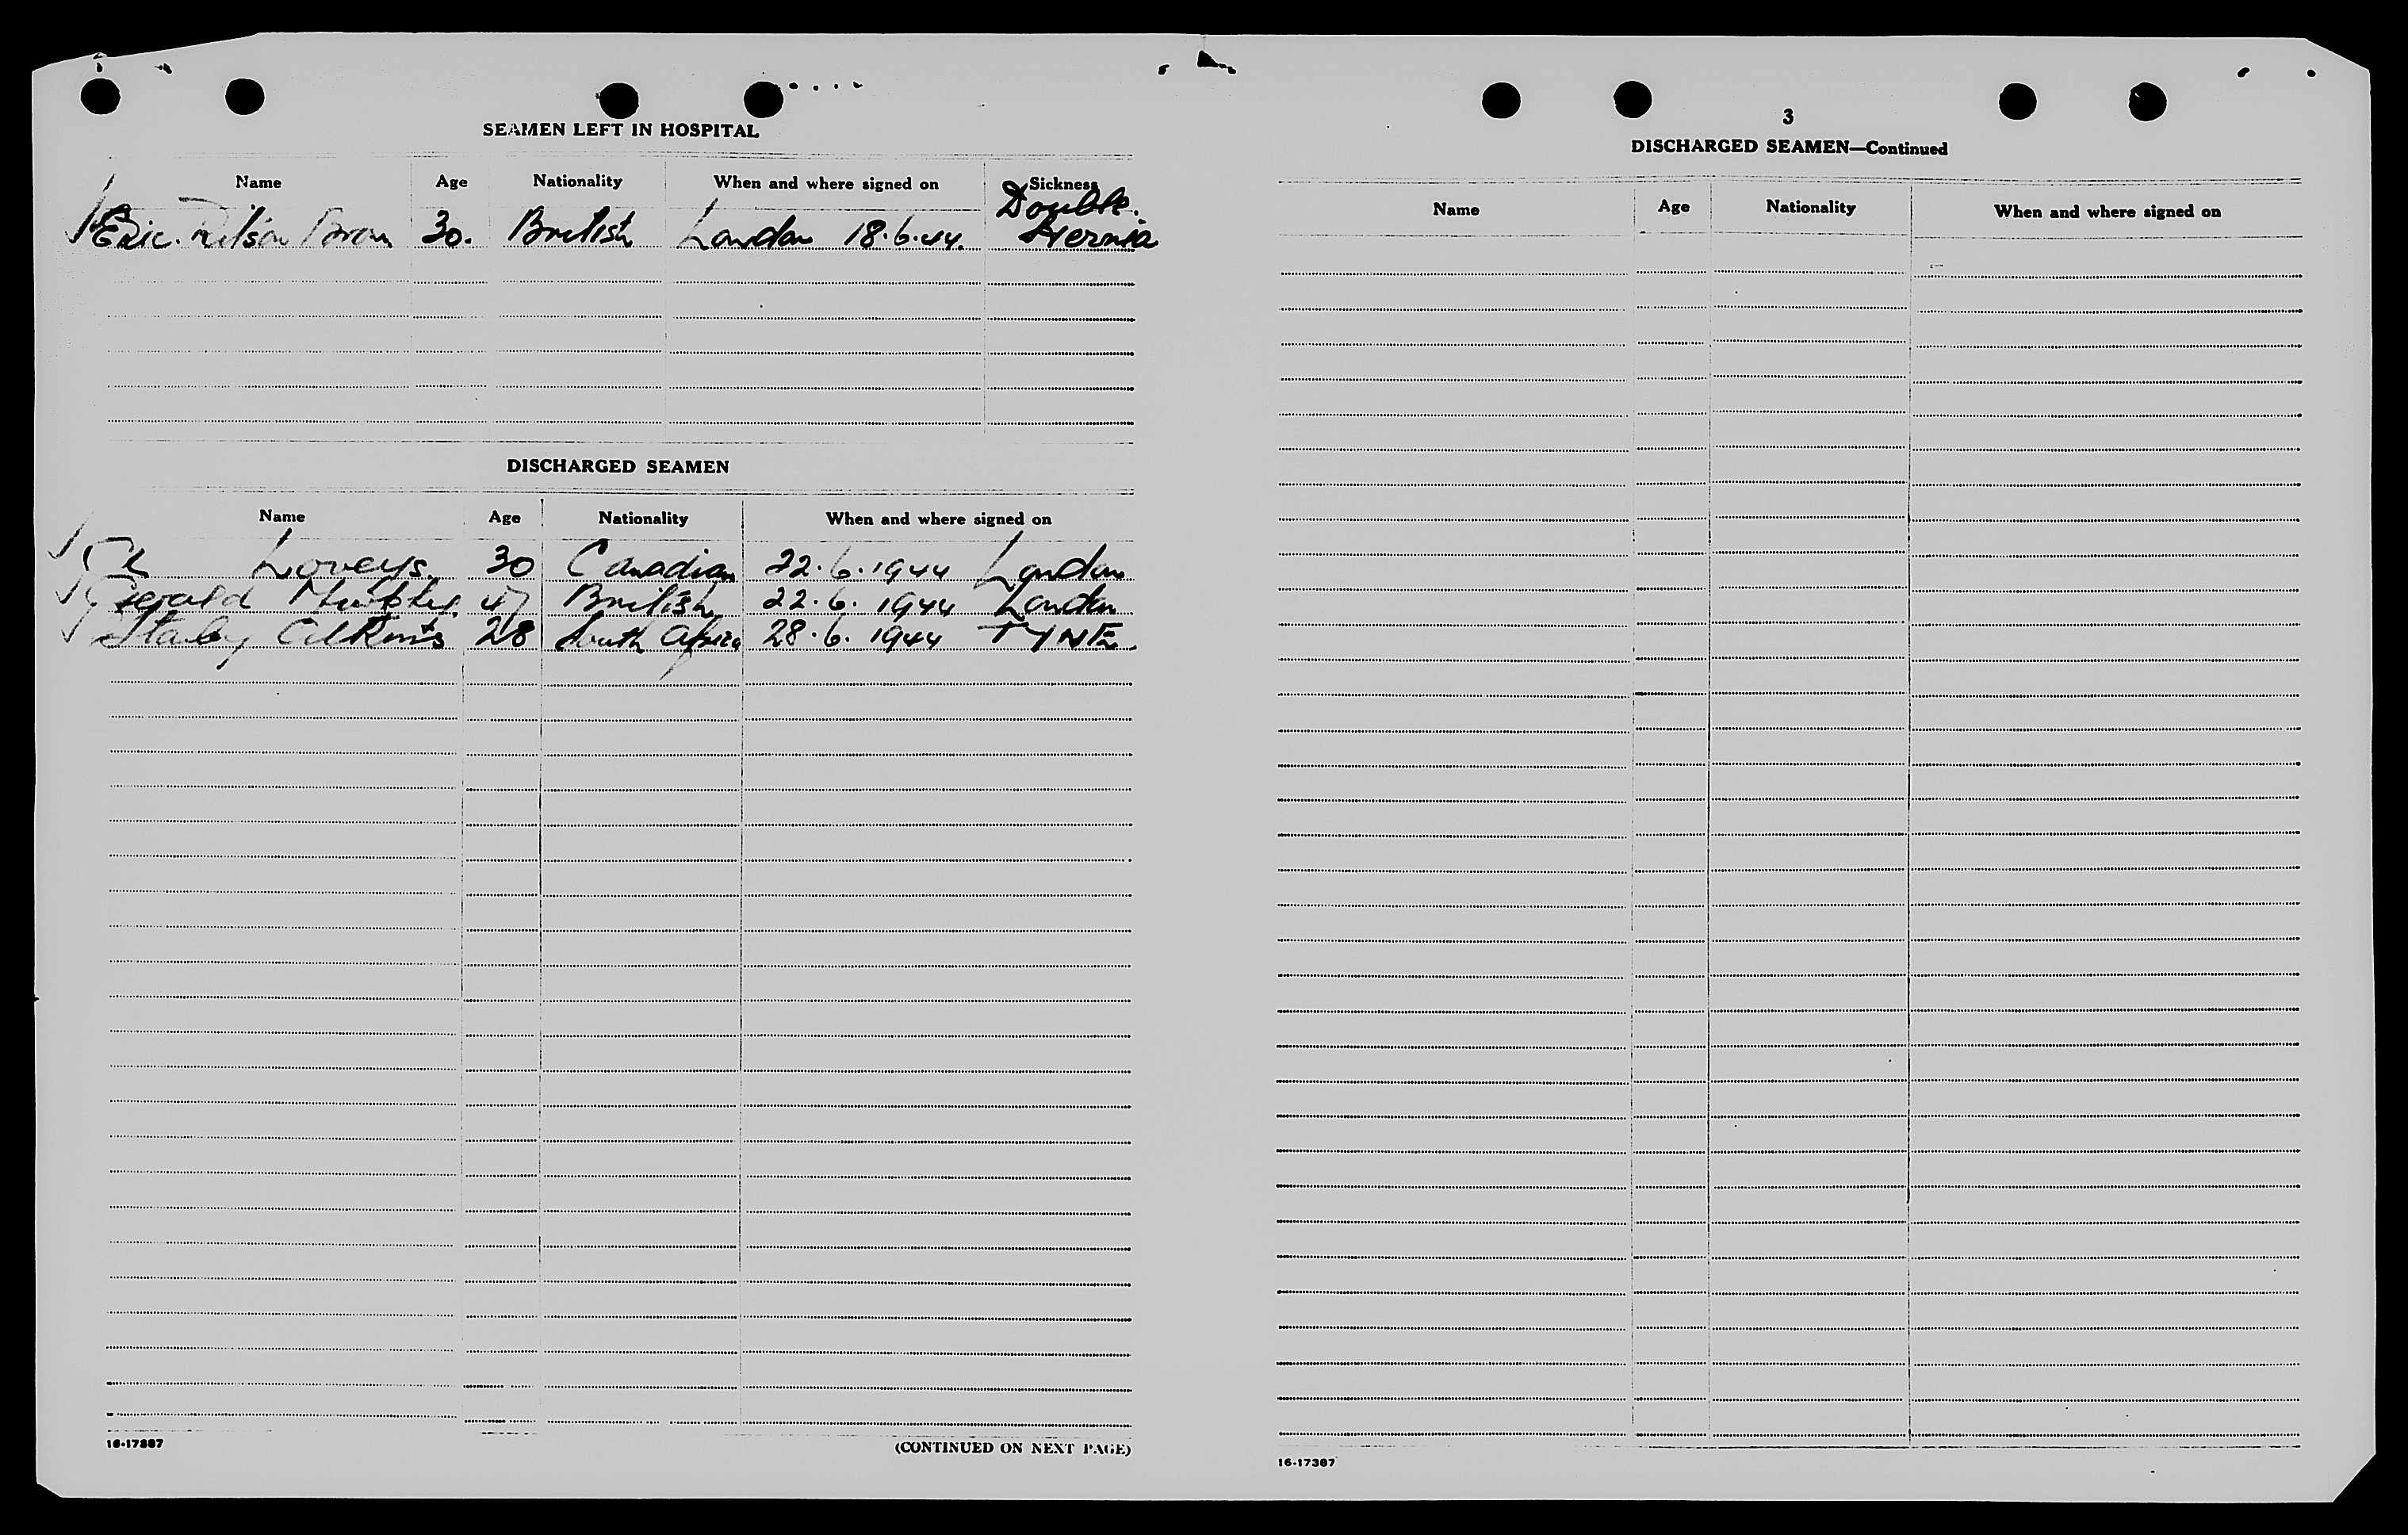 SEAMEN LEFT IN HOSPITAL
Name Age Nationality When and where signed on Sickness
Eric 30. British London 18.6.44. Double. Hernia
DISCHARGED SEAMEN
Name Age Nationality When and where signed on
Loveys. 30 Canadian 22.6.1944 London
Gerald 47 British 22.6.1944 London
Stanley 28 South Africa 28.6.1944 TYNE
16-17387
(CONTINUED ON NEXT PAGE)
3
DISCHARGED SEAMEN—Continued
Name Age Nationality When and where signed on
16-17387